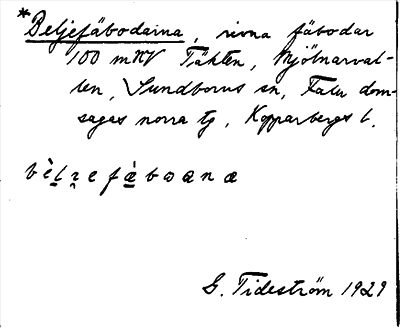 *Beljefäbodarna, rivna fäbodar
100 m NV Täkten, Mjölnarval-
len, Sundborns sn, Falu dom-
sagas norra tg, Kopparbergs l.
G. Tideström 1929